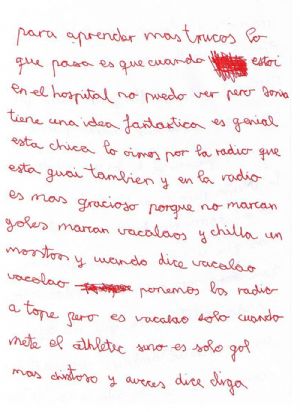 para aprender mas trucos lo
que pasa es que cuando estoi
en el hospital no puedo ver pero Sonia
tiene una idea fantastica es genial
esta chica lo oimos por la radio que
esta guai tambien y en la radio
es mas gracioso porque no marcan
goles marcan vacalaos y chilla un
monton y cuando dice vacalao
vacalao ponemos la radio
a tope pero es vacalao solo cuando
mete el athletec sino es solo gol
mas chistoso y aveces dice diga